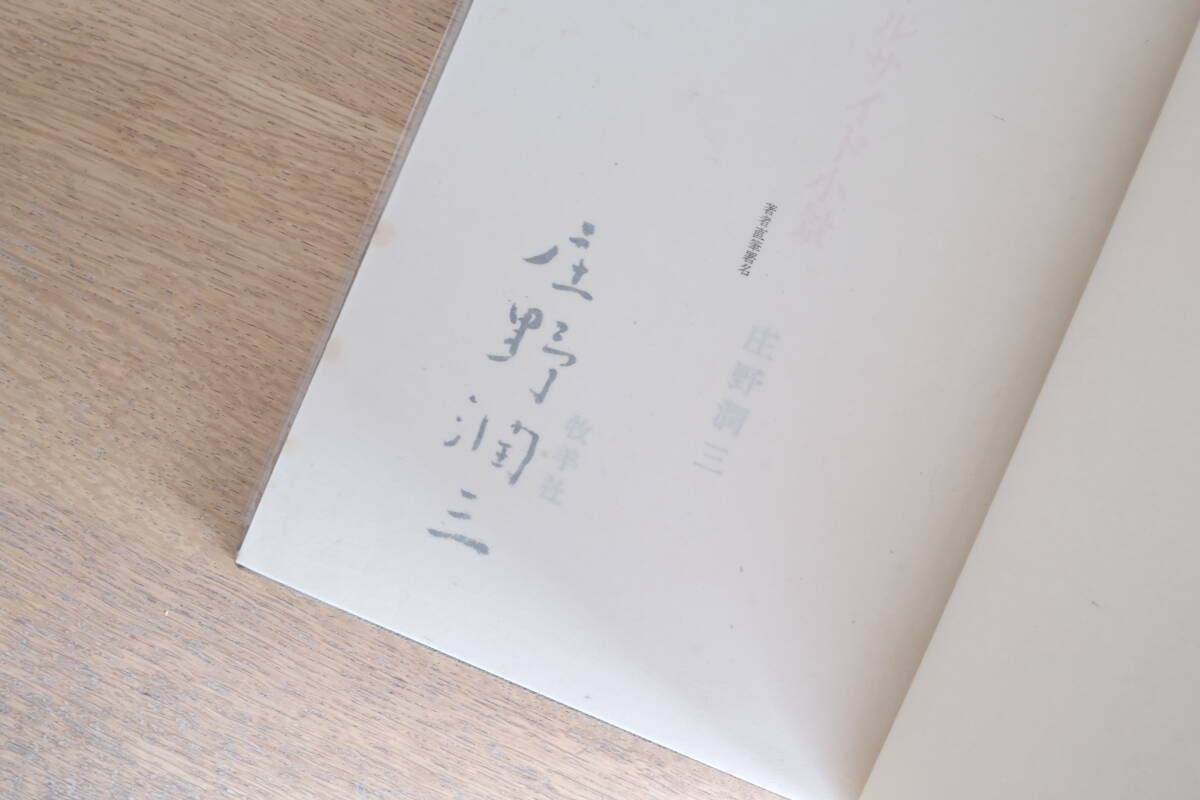 ルサイド小景
著者直筆署名
庄野潤三
牧羊社
庄野潤三